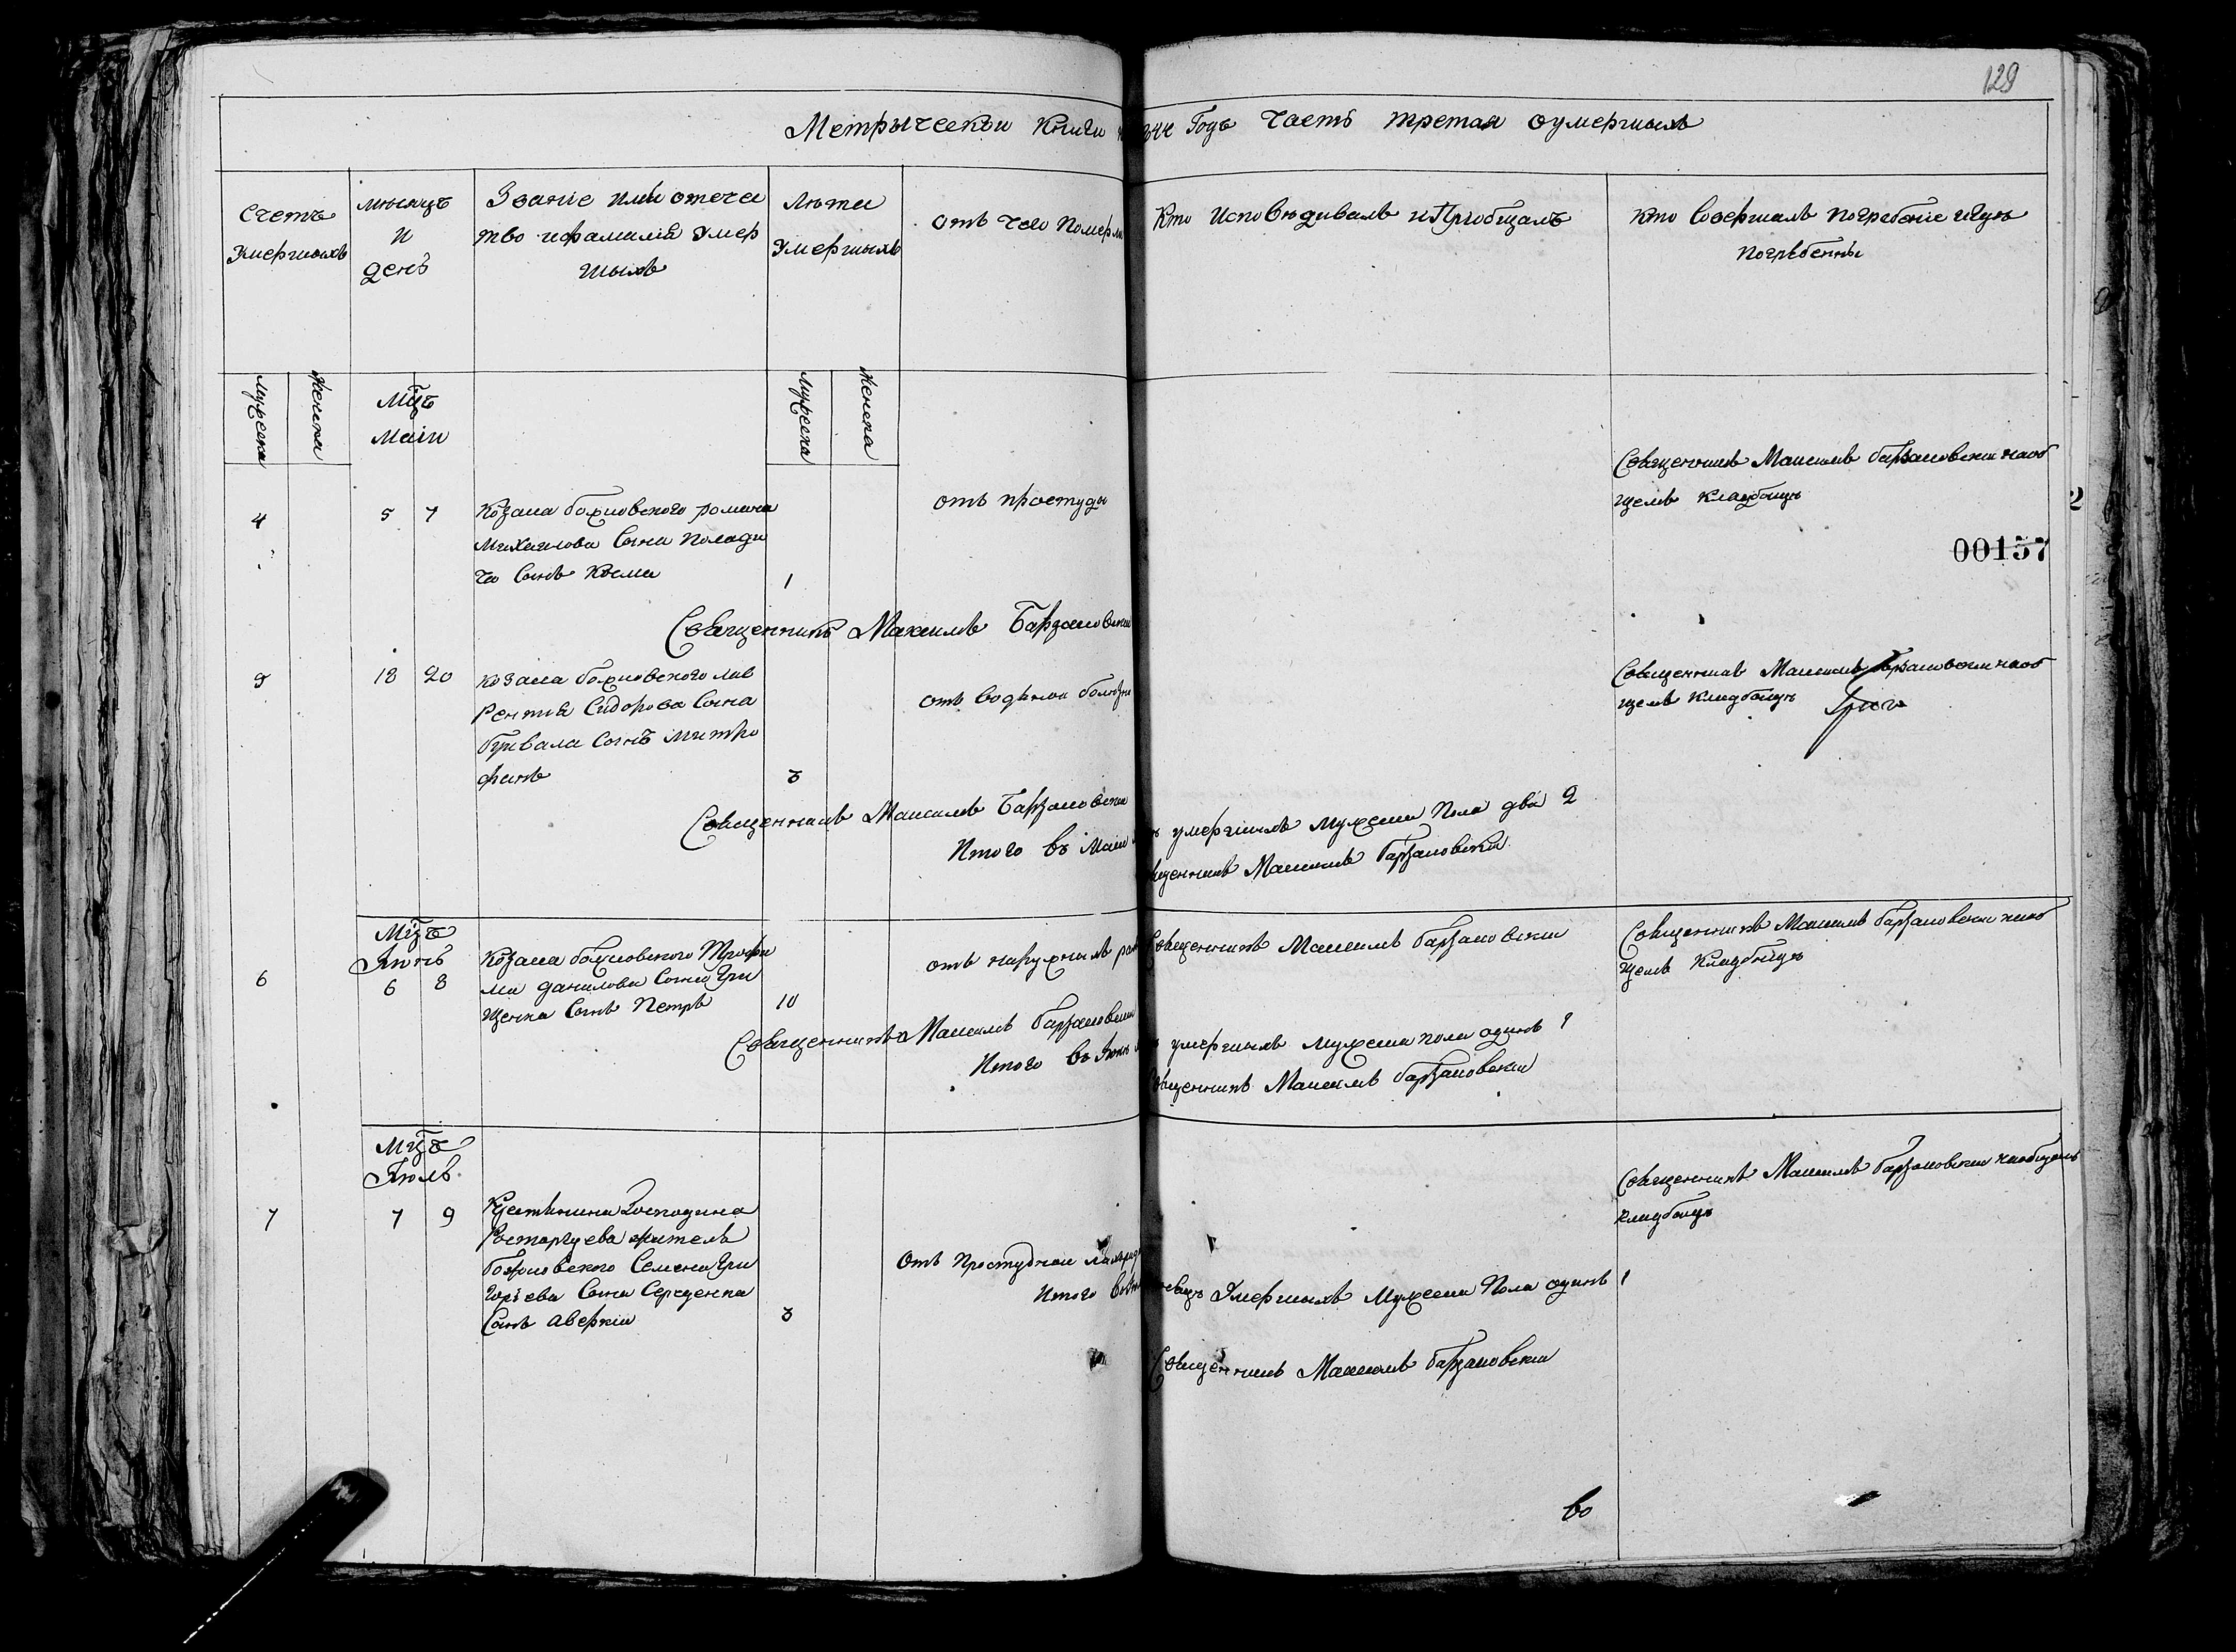 129
Метрыческои книги на 1844 Годъ часть третая оумершыхъ
Счетъ
Умершыхъ
мѣсяцъ
и
день
Званіе имя отечес
тво ифамилія умер
шыхъ
Лѣта
Умершыхъ
отъ чего Померли
Кто Исповѣдивалъ иПріобщалъ
кто Совершалъ погребеніе игдѣ
погрѣбенны
Мужеска
Женска
Мцъ
Маіи
Мужеска
Женска
4
5 7
Козака божковского романа
Михаилова Сына
Сынъ Косма
1
отъ простуды
Священникъ Максимъ барзаковски наоб
щемъ кладбищѣ
00157
Священникъ Максимъ Барзаковски
5
18 20
козака божковского лав
рентія Сидорова Сына
бувала Сынъ митро
фанъ
3
отъ водяной болѣзни
Священникъ Максимъ барзаковски наоб
щемъ кладбищѣ
Священникъ Максимъ Барзаковски
Итого въ Маіи умершихъ мужеска Пола два 2
Священникъ Максимъ барзаковски
Мцъ
Іюнь
6
6 8
Козака божковского Трофи
ма данилова Сына Гри
щенка Сынъ Петръ
10
отъ наружныхъ ранъ
Священникъ Максимъ барзаковски
Священникъ Максимъ барзаковски наоб
щемъ Кладбищѣ
Священникъ Максимъ барзаковски
Итого въ Іюнѣ умершихъ мужеска пола одинъ 1
Священникъ Максимъ барзаковски
Мцъ
Іюль
7
7 9
Крестянина Господина
Росторгуева житель
божковского Семена Гри
горъева Сына Середенка
Сынъ аверкіи
3
Отъ Простудной
Священникъ Максимъ барзаковски наобщемъ
кладбищѣ
Итого Умершыхъ Мужеска Пола одинъ 1
Священникъ Максимъ барзаковски
во